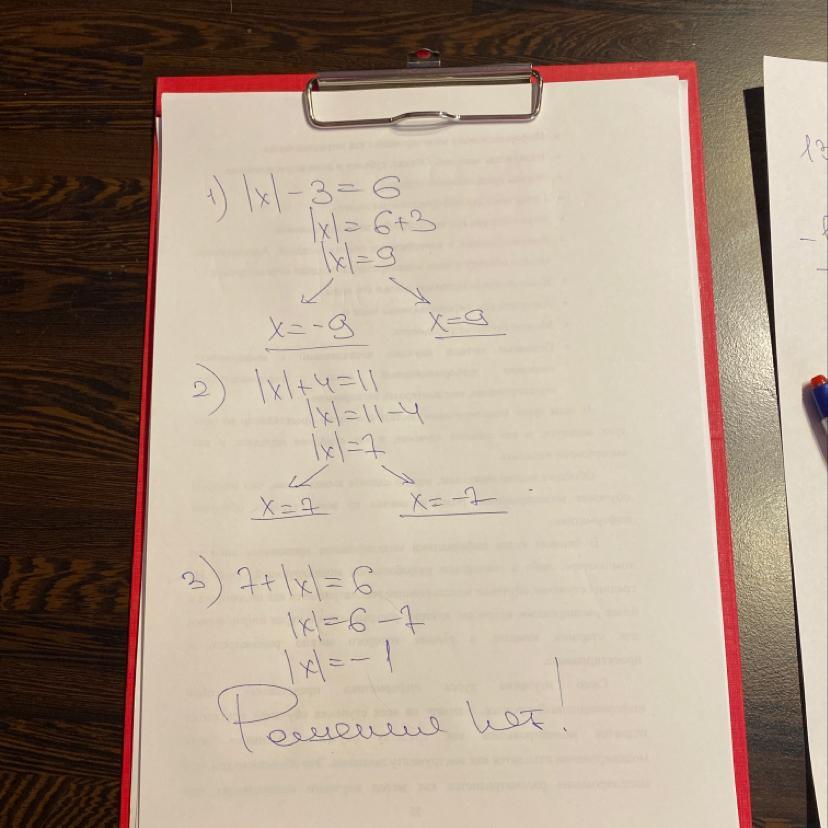 1) |x| - 3 = 6
|x| = 6+3
|x| = 9
x = -9 x = 9
2) |x|+4=11
|x|=11-4
|x|=7
x=7 x=-7
3) 7+|x|=6
|x|=6-7
|x|=-1
Решения нет!
13